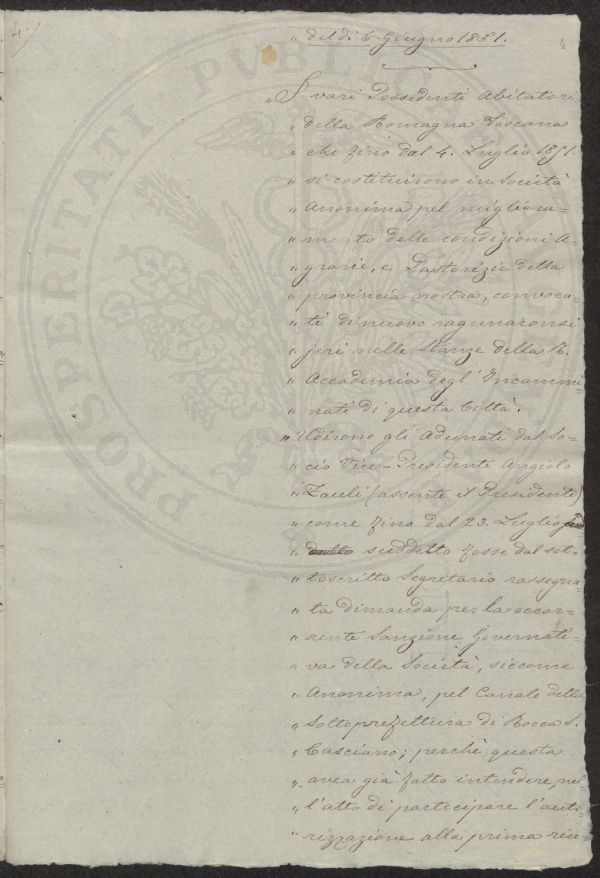 4.)
„ del dì 6. Giugno 1851.
„ I vari Possidenti Abitatori
„ della Romagna Toscana
„ che fino dal 4. Luglio 1851.
„ si costituirono in Società
„ Anonima pel migliora=
„ mento delle condizioni A=
„ grarie, e Pastorizie della
„ provincia nostra, convoca=
„ ti di nuovo ragunaronsi
„ jeri nelle Stanze della R.
„ Accademia degl' Incammi=
„ nati di questa Città.
„ Udirono gli Adunati dal So=
„ cio Vice-Presidente Angiolo
„ Zauli (assente il Presidente)
„ come fino dal 23. Luglio
„ suddetto fosse dal sot=
„ toscritto Segretario rassegna=
„ ta dimanda per la occor=
„ rente Sanzione Governati=
„ va della Società, siccome
„ Anonima, pel Canale della
„ Sotto prefettura di Rocca S.
„ Casciano; perchè questa
„ avea già fatto intendere, nel
„ l'atto di partecipare l'auto=
„ rizzazione alla prima riu=
PROSPERITATI PVBLIC